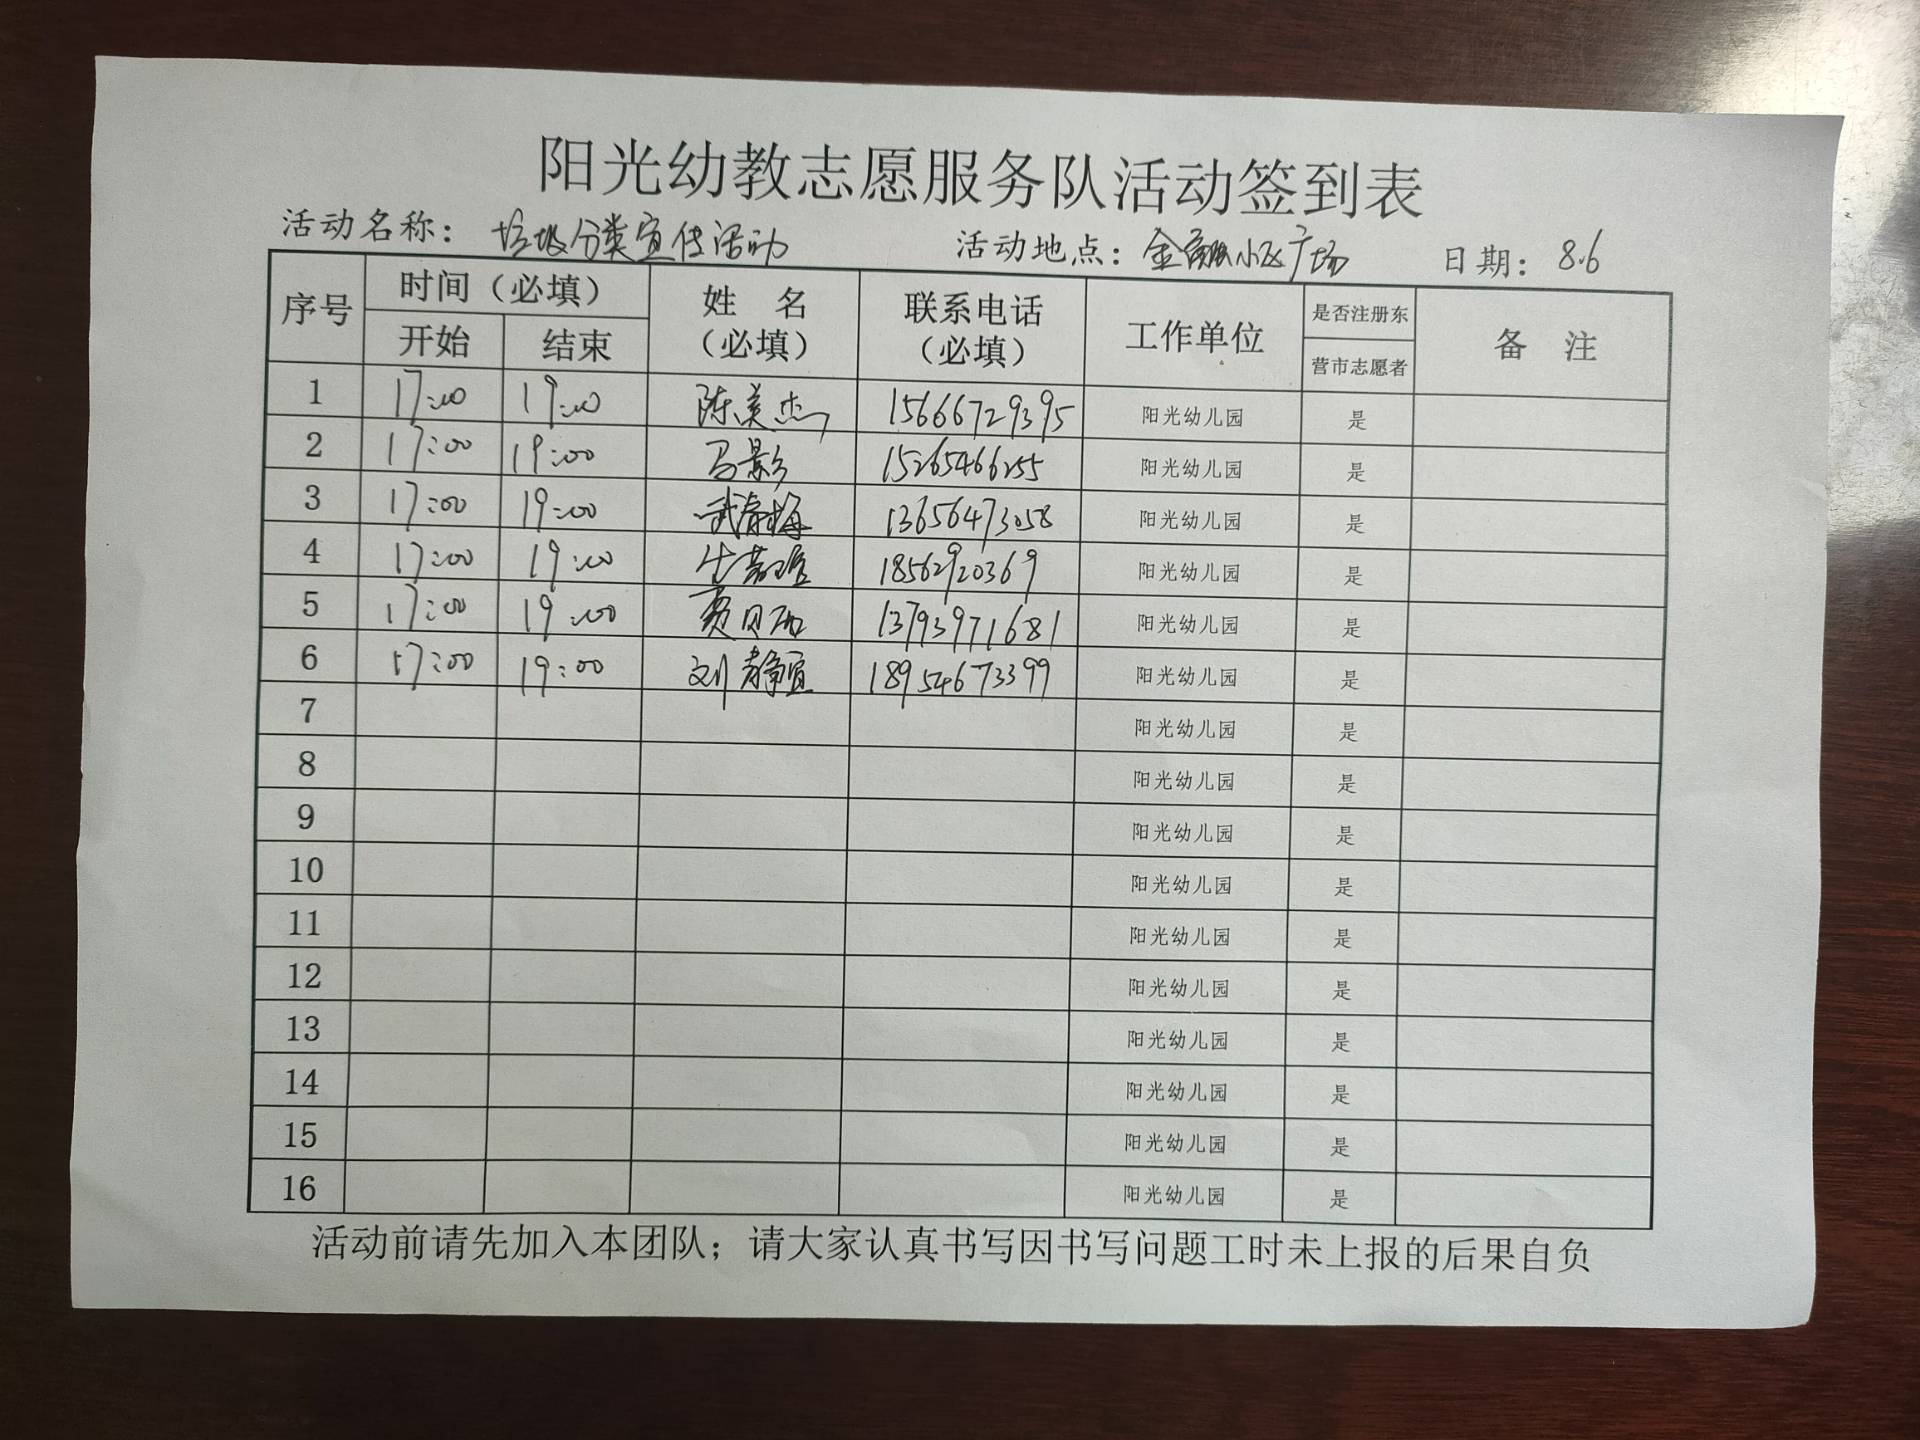 阳光幼教志愿服务队活动签到表
活动名称：垃圾分类宣传活动 活动地点：金融小区广场 日期：8.6
序号 时间（必填） 姓 名（必填） 联系电话（必填） 工作单位 是否注册东营市志愿者 备 注
开始 结束
1 17:00 19:00 陈美杰 15666729395 阳光幼儿园 是
2 17:00 19:00 马影 15265466255 阳光幼儿园 是
3 17:00 19:00 武春梅 13656473058 阳光幼儿园 是
4 17:00 19:00 18562920369 阳光幼儿园 是
5 17:00 19:00 13793971681 阳光幼儿园 是
6 17:00 19:00 刘静宜 18954673399 阳光幼儿园 是
7 阳光幼儿园 是
8 阳光幼儿园 是
9 阳光幼儿园 是
10 阳光幼儿园 是
11 阳光幼儿园 是
12 阳光幼儿园 是
13 阳光幼儿园 是
14 阳光幼儿园 是
15 阳光幼儿园 是
16 阳光幼儿园 是
活动前请先加入本团队；请大家认真书写因书写问题工时未上报的后果自负